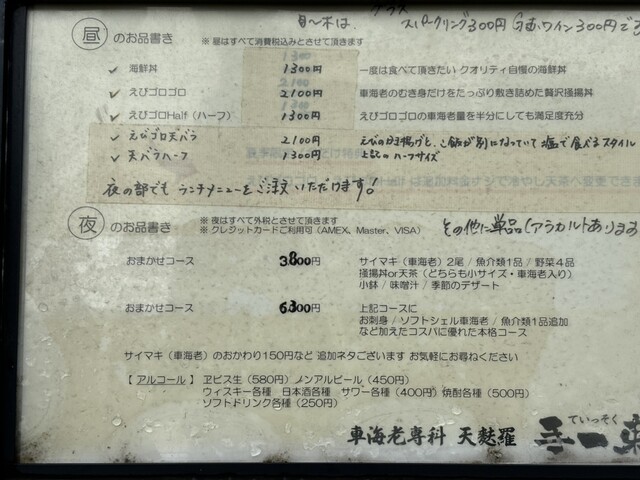 月〜木は、グラス スパークリング300円 白ワイン300円で
昼 のお品書き ※ 昼はすべて消費税込みとさせて頂きます
✓ 海鮮丼 1300円 一度は食べて頂きたい クオリティ自慢の海鮮丼
✓ えびゴロゴロ 2100円 車海老のむき身だけをたっぷり敷き詰めた贅沢掻揚丼
✓ えびゴロHalf（ハーフ） 1300円 えびゴロゴロの車海老量を半分にしても満足度充分
✓ えびゴロ天バラ 2100円 えびのかき揚げと、ご飯が別になっていて塩で食べるスタイル
✓ 天バラハーフ 1300円 上記のハーフサイズ
夜の部でも ランチメニューをご注文いただけます！
夜 のお品書き ※ 夜はすべて外税とさせて頂きます
※ クレジットカードご利用可（AMEX、Master、VISA）
その他に単品（アラカルトあります
おまかせコース 3800円 サイマキ（車海老）2尾 / 魚介類1品 / 野菜4品
掻揚丼or天茶（どちらも小サイズ・車海老入り）
小鉢 / 味噌汁 / 季節のデザート
おまかせコース 6300円 上記コースに
お刺身 / ソフトシェル車海老 / 魚介類1品追加
など加えたコスパに優れた本格コース
サイマキ（車海老）のおかわり150円など 追加ネタございます お気軽にお尋ねください
【 アルコール 】 ヱビス生（580円）ノンアルビール（450円）
ウィスキー各種 日本酒各種 サワー各種（400円）焼酎各種（500円）
ソフトドリンク各種（250円）
ていっそく
車海老専科 天麩羅